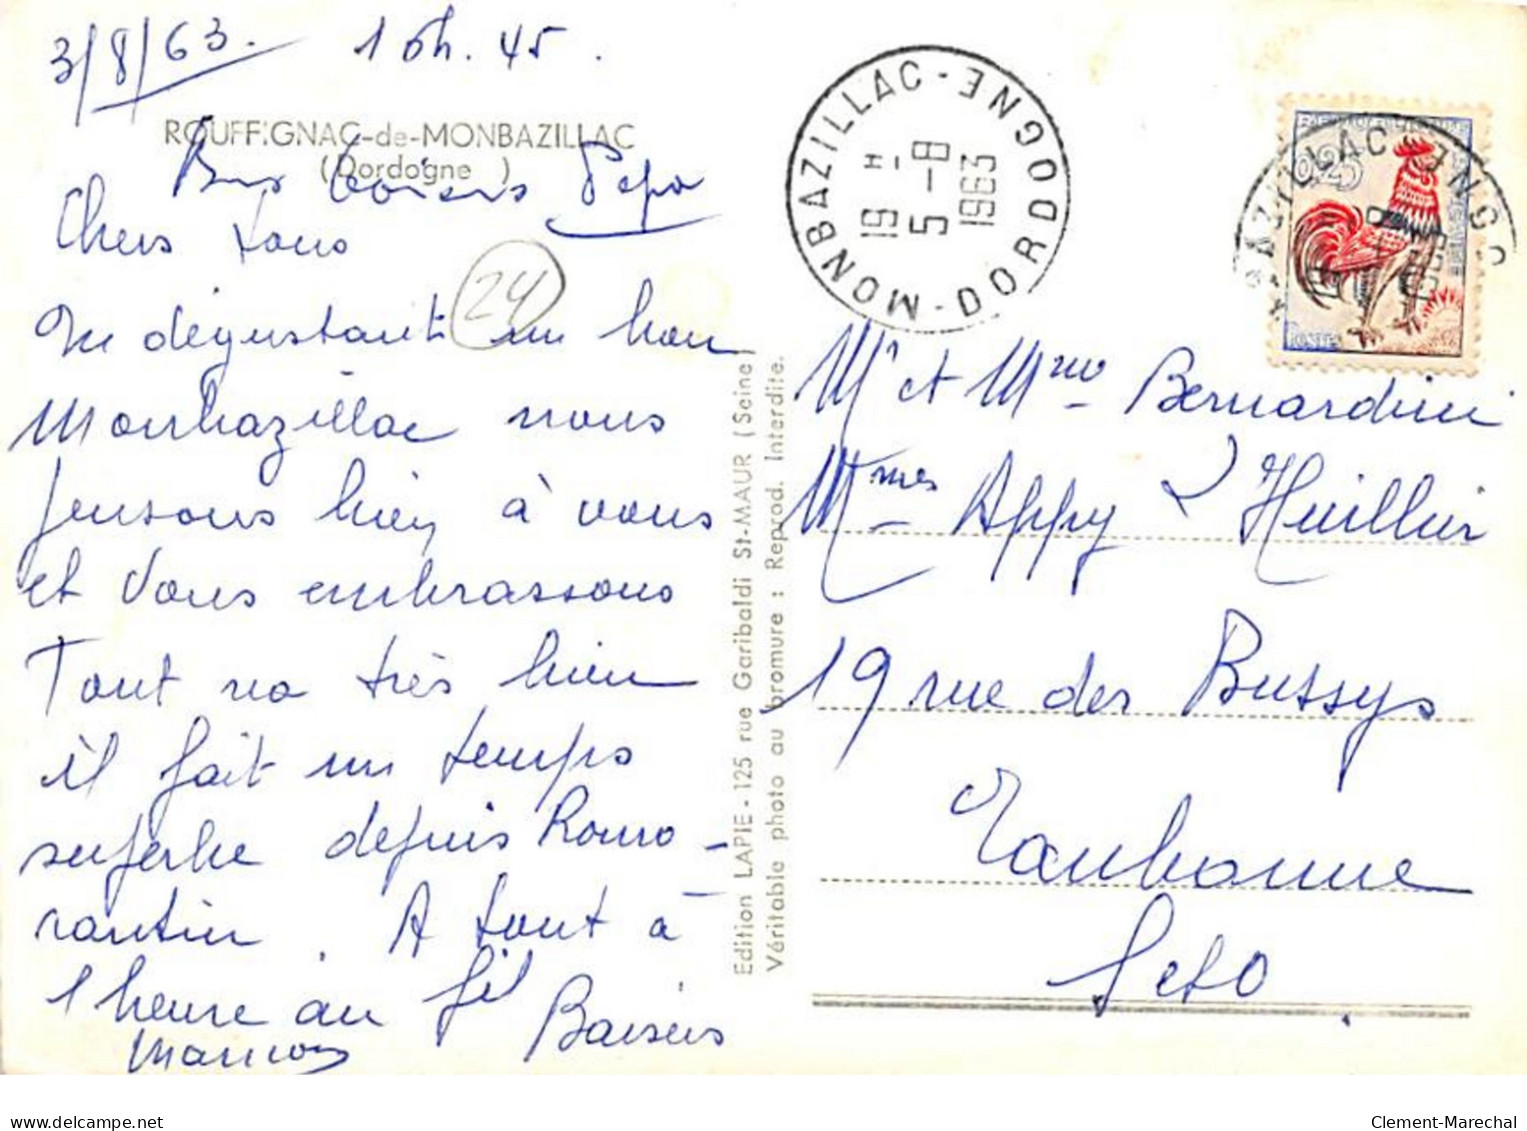 3/8/63. 16h. 45.
ROUFFIGNAC-de-MONBAZILLAC
(Dordogne )
Bons baisers Pepa
Chers tous
En dégustant un bon
Monbazillac nous
pensons bien à vous
et vous embrassons
Tout va très bien
il fait un temps
superbe depuis Romo-
rantin. A tout à
l'heure au fil Baisers
24
Edition LAPIE - 125 rue Garibaldi St-MAUR (Seine)
Véritable photo au bromure : Reprod. Interdite.
MONBAZILLAC - DORDOGNE
19 H -
5 - 8
1963
0,25
POSTES
Mr et Mme Bernardini
Mmes Appy & Huillier
19 rue des Bussys
Eaubonne
S et O
Clement-Marechal